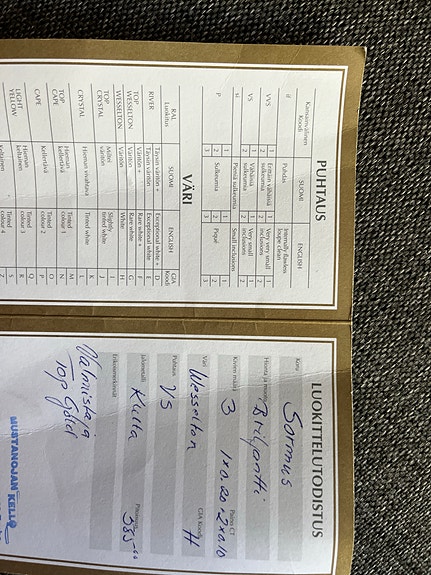 PUHTAUS
Kansainvälinen Koodi SUOMI ENGLISH
if Puhdas Internally flawless loupe clean
VVS 1 Erittäin vähäisiä 1 Very very small 1
2 sulkeumia 2 inclusions 2
VS 1 Vähäisiä 1 Very small 1
2 sulkeumia 2 inclusions 2
si Pieniä sulkeumia Small inclusions 1
2
P 1 1 1
2 Sulkeumia 2 Piqué 2
3 3 3
VÄRI
RAL Luokitus SUOMI ENGLISH GIA Koodi
RIVER Täysin väritön + Exceptional white + D
Täysin väritön Exceptional white E
TOP Väritön + Rare white + F
WESSELTON Väritön Rare white G
WESSELTON Väritön White H
TOP Miltei Slightly I
CRYSTAL väritön tinted white J
CRYSTAL Hieman vivahtava Tinted white K
L
TOP Hieman Tinted M
CAPE kellertävä colour 1 N
CAPE Kellertävä Tinted O
colour 2 P
LIGHT Hieman Tinted Q
YELLOW keltainen colour 3 R
Tinted S
colour 4
LUOKITTELUTODISTUS
Koru
Sormus
Hionta ja muoto
Briljantti
Kivien määrä Paino CT
3 1x0.20 - 2x0.10
Väri GIA Koodi
Wesselton H
Puhtaus
VS
Jalometalli
Kulta 585
Erikoismerkinnät
Valmistaja
Top Gold
MUSTANOJAN KELLO